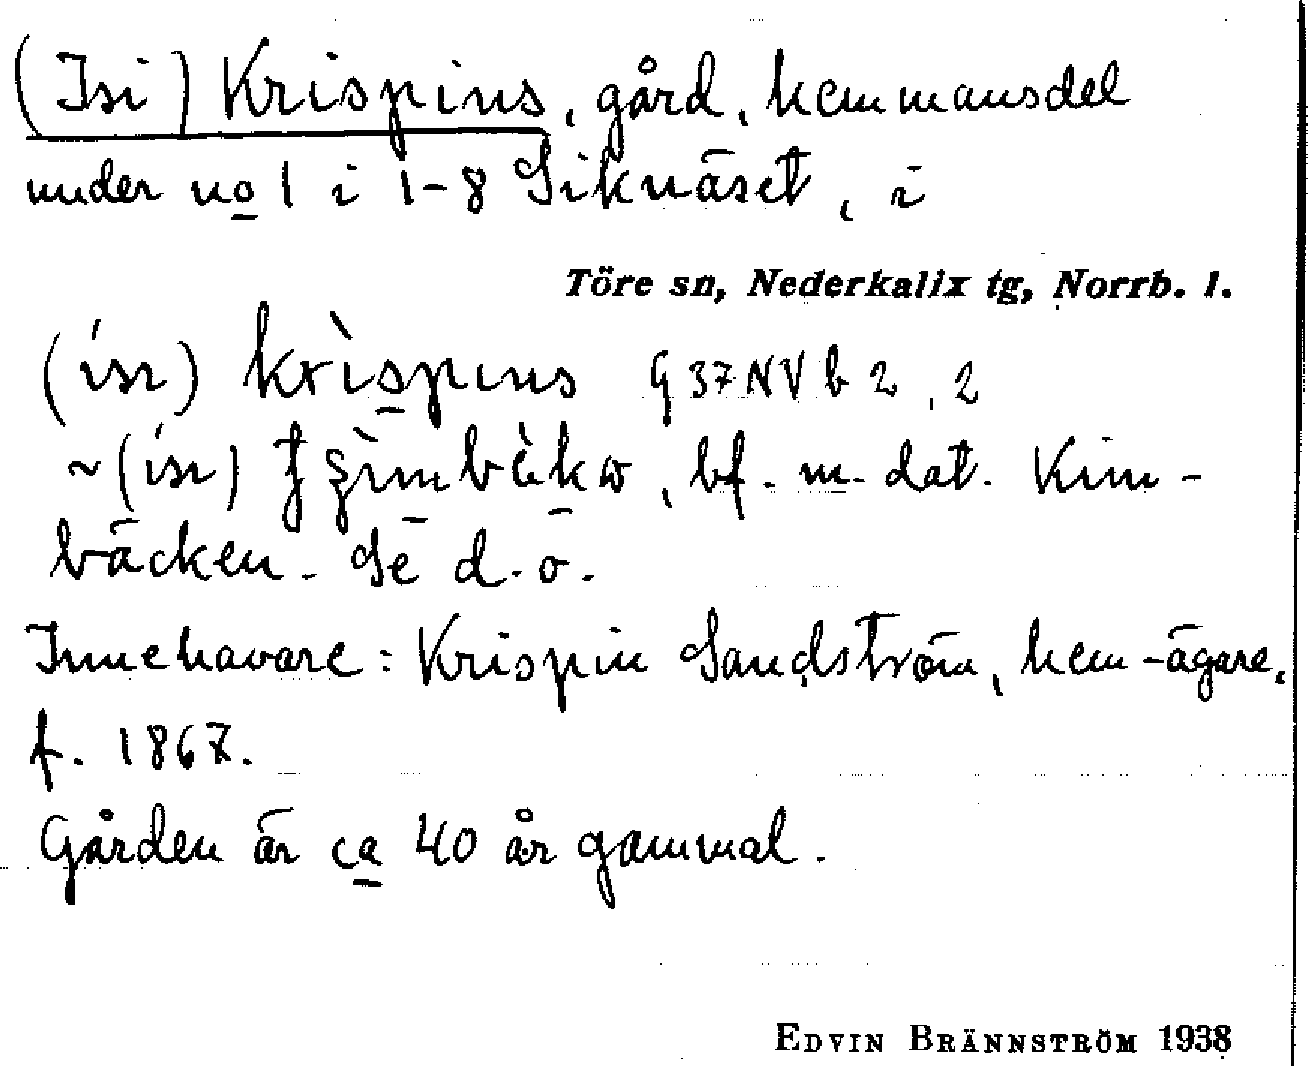 (Isi) Krispins, gård, hemmansdel
under no 1 i 1-8 Siknäset, i
Töre sn, Nederkalix tg, Norrb. l.
krìspins G 37 NV b 2, 2
~ bf. m. dat. Kim-
bäcken. Se d. o.
Innehavare: Krispin Sandström, hem-ägare,
f. 1867.
Gården är ca 40 år gammal.
EDVIN BRÄNNSTRÖM 1938